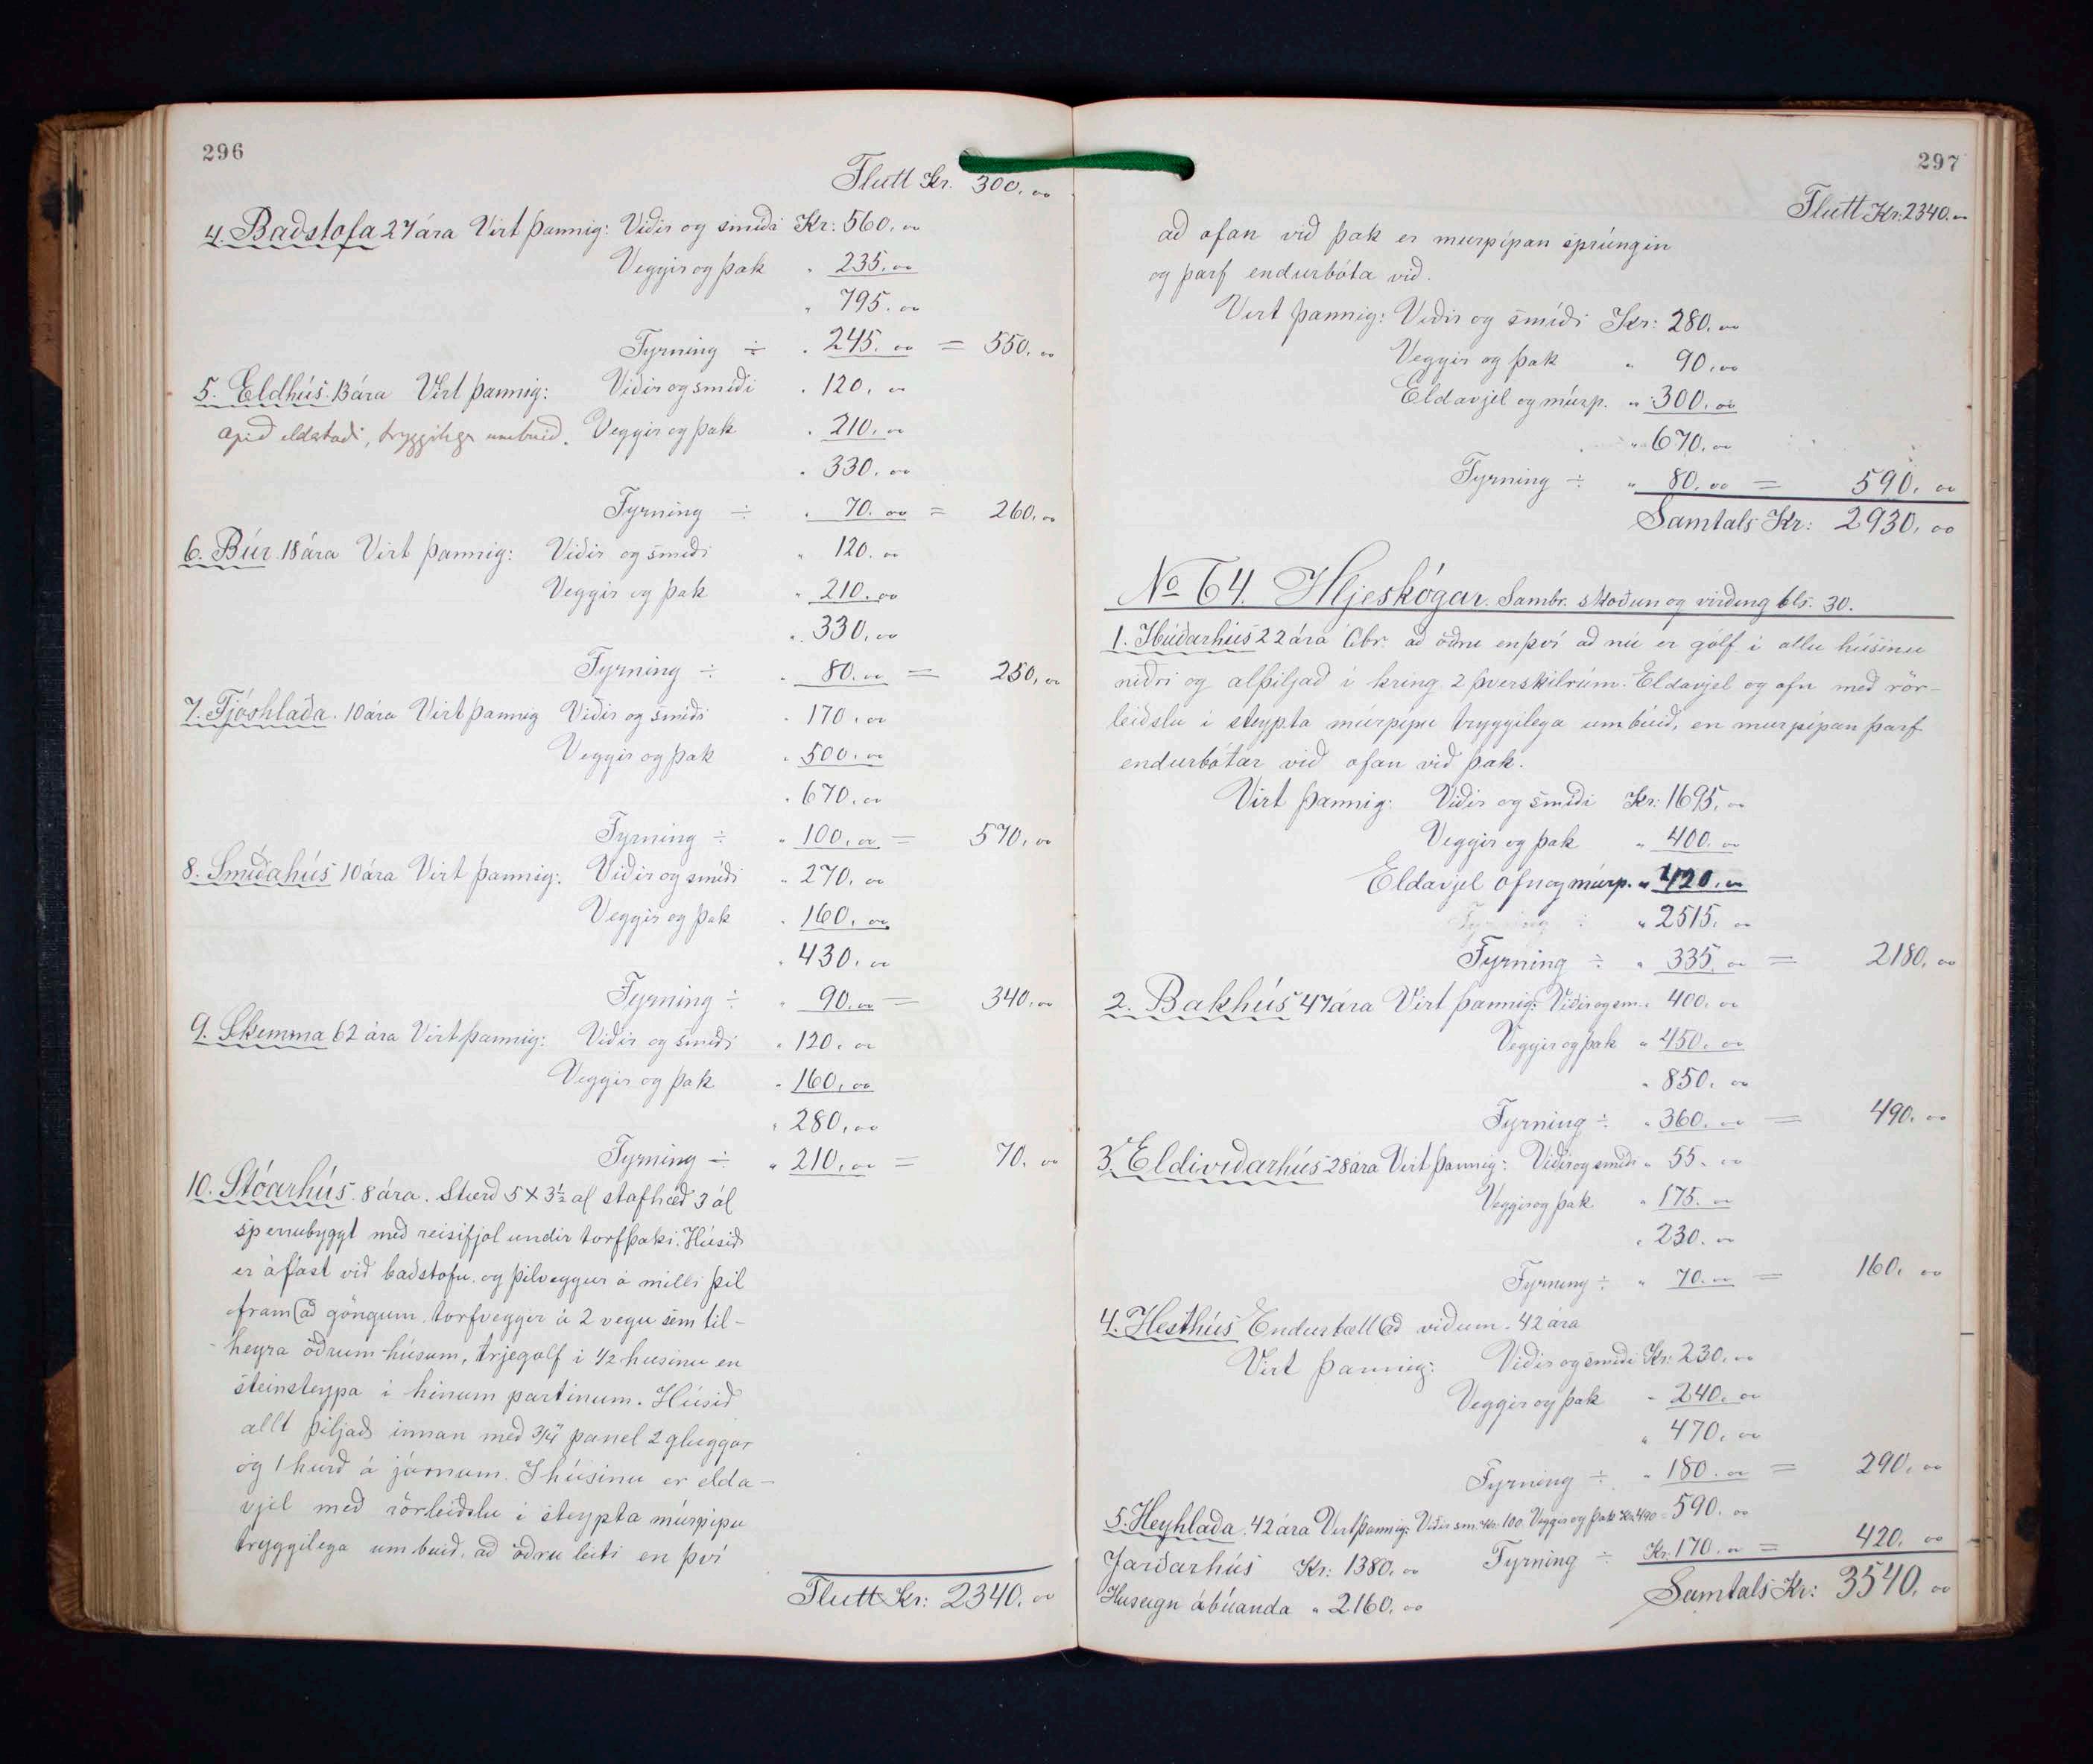 296
Flutt Kr. 300.00
4. Baðstofa 27 ára Virt þannig: Viðir og smíði Kr: 560.00
Veggir og þak „ 235.00
„ 795.00
Fyrning ÷ „ 245.00 = 550.00
5. Eldhús. 13 ára Virt þannig: Viðir og smíði „ 120.00
opið eldstæði, tryggilega umbúið. Veggir og þak „ 210.00
„ 330.00
Fyrning ÷ „ 70.00 = 260.00
6. Búr 18 ára Virt þannig: Viðir og smíði „ 120.00
Veggir og þak „ 210.00
„ 330.00
Fyrning ÷ „ 80.00 = 250.00
7. Fjóshlaða. 10 ára Virt þannig Viðir og smíði „ 170.00
Veggir og þak „ 500.00
„ 670.00
Fyrning ÷ „ 100.00 = 570.00
8. Smíðahús 10 ára Virt þannig: Viðir og smíði „ 270.00
Veggir og þak „ 160.00
„ 430.00
Fyrning ÷ „ 90.00 = 340.00
9. Skemma 62 ára Virt þannig: Viðir og smíði „ 120.00
Veggir og þak „ 160.00
„ 280.00
Fyrning ÷ „ 210.00 = 70.00
10. Stóarhús. 8 ára. Stærð 5 x 3½ al stafhæð 3 ál
sperrubyggt með reisifjöl undir torfþaki. Húsið
er áfast við baðstofu og þilveggur á milli þil
fram að göngum. torfveggir á 2 vegu sem til-
heyra öðrum húsum, trjegolf i 1/2 husinu en
steinsteypa i hinum partinum. Húsið
allt þiljað innan með 3/4" panel 2 gluggar
og 1 hurð á járnum. I húsinu er elda-
vjel með rörleiðslu i steypta múrpipu
tryggilega umbuið. að öðru leiti en því
Flutt Kr: 2340.00
297
Flutt Kr: 2340.00
að ofan við þak er murpípan sprúngin
og þarf endurbóta við.
Virt þannig: Viðir og smíði Kr: 280.00
Veggir og þak „ 90.00
Eldavjel og múrp. „ 300.00
„ 670.00
Fyrning ÷ „ 80.00 = 590.00
Samtals Kr: 2930.00
No 64. Hljeskógar. Sambr. skoðun og virðing bls. 30.
1. Ibúðarhús 22 ára Obr. að öðru en því að nú er gólf i öllu húsinu
niðri og alþiljað i kring 2 þverskilrúm. Eldavjel og ofn með rör-
leiðslu i steypta múrpípu tryggilega umbúið, en murpípan þarf
endurbótar við ofan við þak.
Virt þannig: Viðir og smíði Kr: 1695.00
Veggir og þak „ 400.00
Eldavjel ofn og múrp. „ 420.00
„ 2515.00
Fyrning ÷ „ 335.00 = 2180.00
2. Bakhús 47 ára Virt þannig: Viðir og sm. „ 400.00
Veggir og þak „ 450.00
„ 850.00
Fyrning ÷ „ 360.00 = 490.00
3. Eldiviðarhús 28 ára Virt þannig: Viðir og smíði „ 55.00
Veggir og þak „ 175.00
„ 230.00
Fyrning ÷ „ 70.00 = 160.00
4. Hesthús Endurbætt að viðum. 42 ára
Virt þannig: Viðir og smíði Kr: 230.00
Veggir og þak „ 240.00
„ 470.00
Fyrning ÷ „ 180.00 = 290.00
5. Heyhlaða. 42 ára Virt þannig: Viðir sm. Kr. 100 Veggir og þak Kr. 490 = 590.00
Jarðarhús Kr: 1380.00 Fyrning ÷ Kr. 170.00 = 420.00
Huseign ábúanda „ 2160.00 Samtals Kr: 3540.00